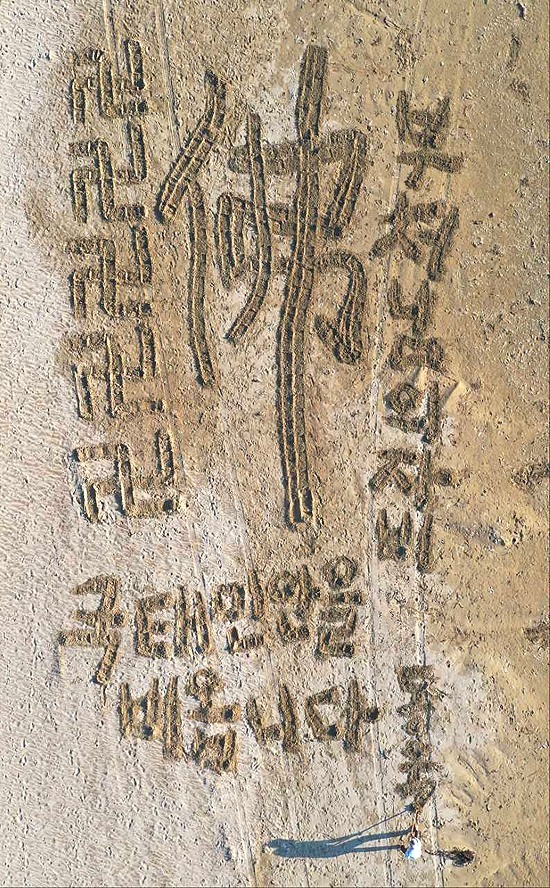 卍卍卍卍卍
佛
부처님의자비
국태민안을
비옵니다